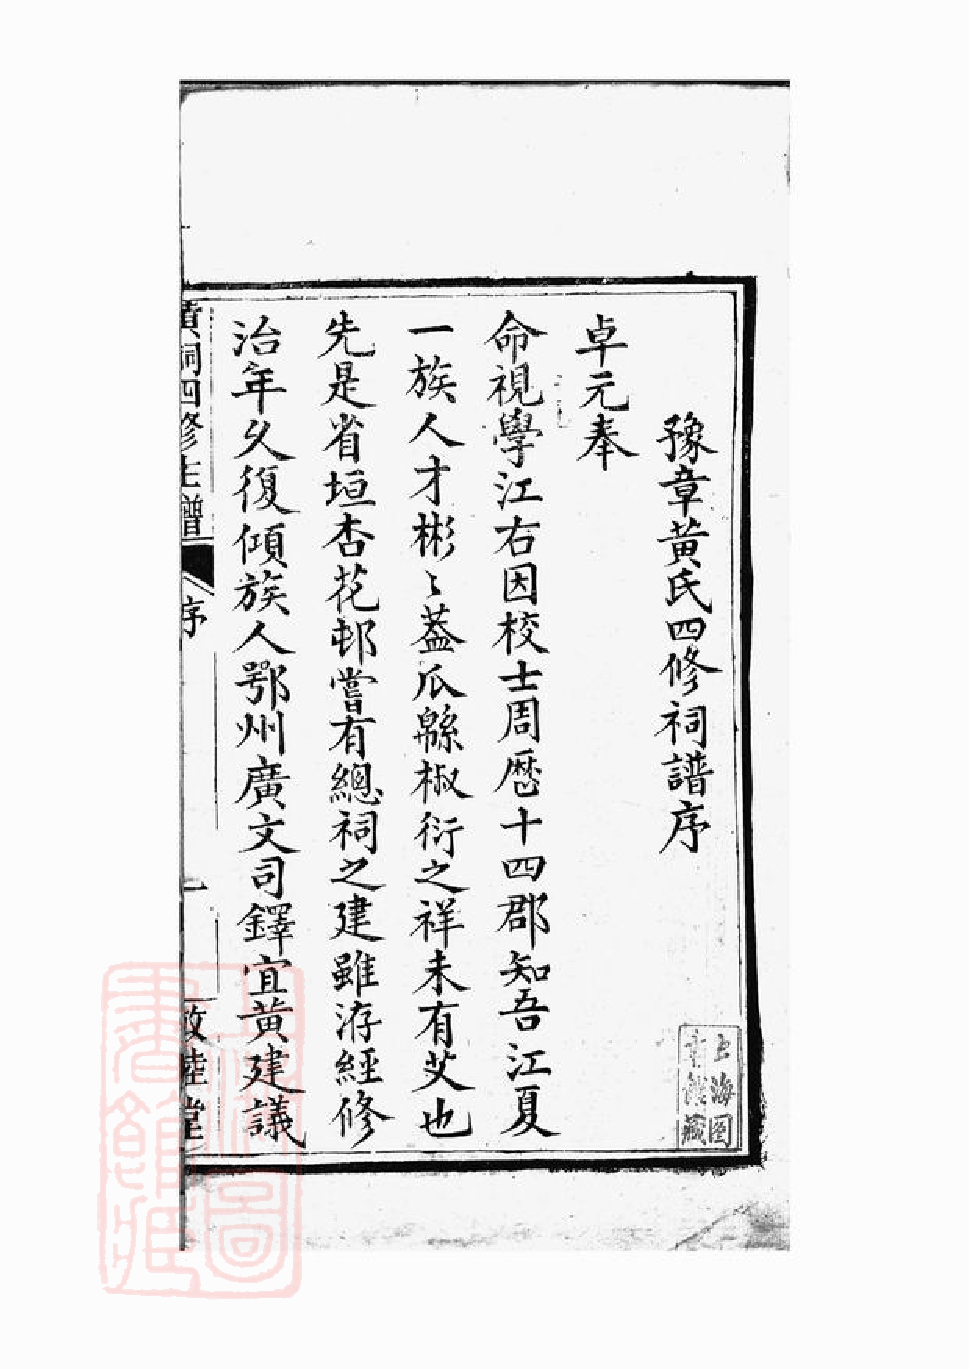 豫章黄氏四修祠譜序
卓元奉
命視學江右因校士周歴十四郡知吾江夏
一族人才彬〻葢瓜緜椒衍之祥未有艾也
先是省垣杏花邨嘗有總祠之建雖洊經修
治年久復傾族人鄂州廣文司鐸宜黄建議
黄祠四修主譜
序
一
敦睦堂
上海圖書館藏
上海圖書館藏